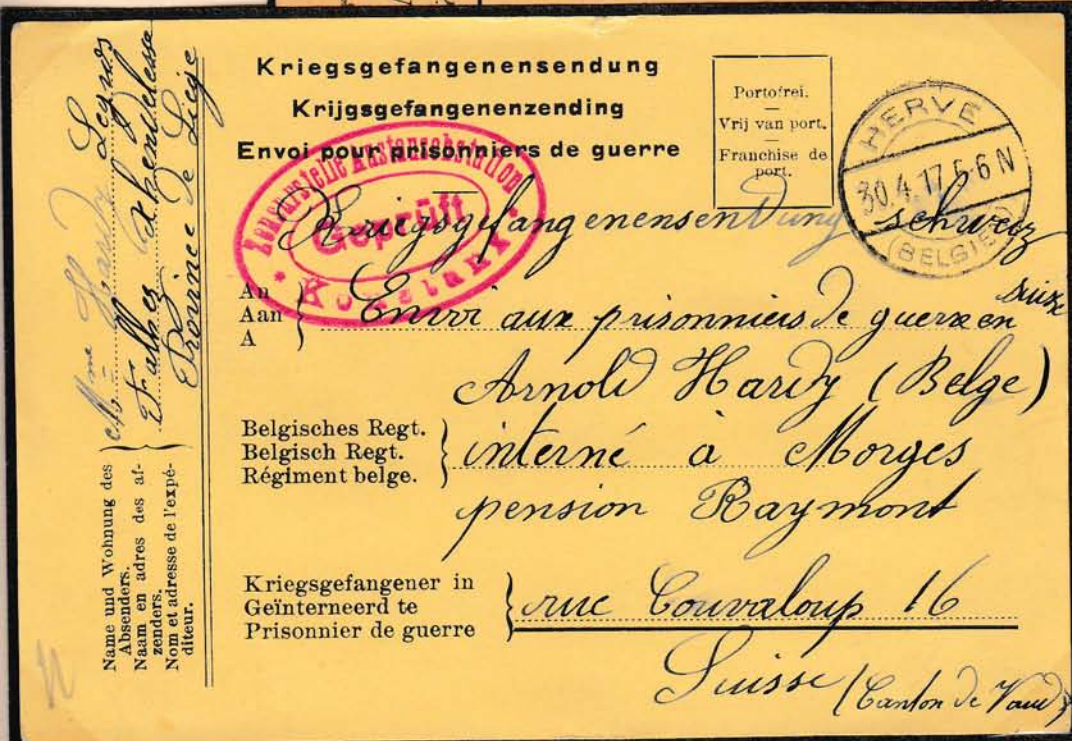 Kriegsgefangenensendung
Krijgsgefangenenzending
Envoi pour prisonniers de guerre
Portofrei.
Vrij van port.
Franchise de port.
HERVE
30.4.17. 5-6 N
(BELGIEN)
Geprüft
Konstanz
Kriegsgefangenensendung schweiz
An
Aan
A
Envoi aux prisonniers de guerre en suisse
Arnold Hardy (Belge)
Belgisches Regt.
Belgisch Regt.
Régiment belge.
interné à Morges
pension Raymont
Kriegsgefangener in
Geïnterneerd te
Prisonnier de guerre
rue Couvaloup 16
Suisse (Canton de Vaud)
Name und Wohnung des
Absenders.
Naam en adres des af-
zenders.
Nom et adresse de l'expé-
diteur.
Mme Hardy Legros
Falhez Xhendelesse
Province de Liège